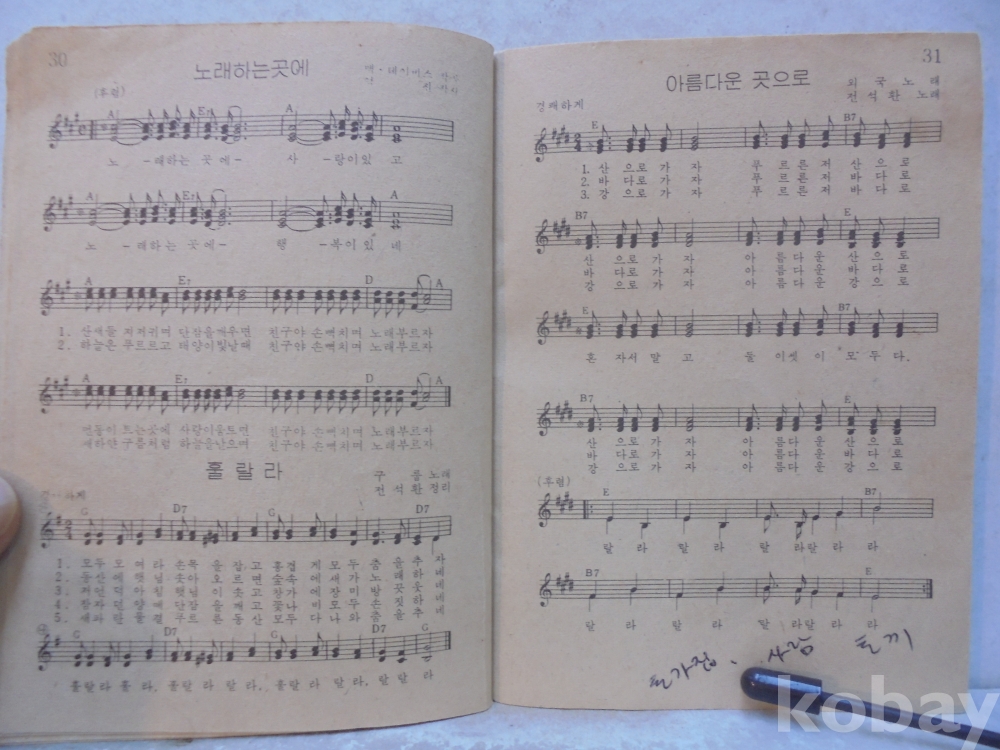 30
노래하는곳에
(후렴)
A E7 A
노 -래하는 곳 에- 사 -랑이있 고
A E7 A
노 -래하는 곳에- 행 -복이있 네
A E7 D
1. 단잠을깨우면 친구야 손뼉치며 노래부르자
2. 하늘은 푸르르고 태양이빛날때 친구야 손뼉치며 노래부르자
A E7 D A
사랑이움트면 친구야 손뼉치며 노래부르자
새하얀 구름처럼 하늘을날으며 친구야 손뼉치며 노래부르자
훌랄라
노래
전석환 정리
G D7 G D7
1. 모두 모여라 손목을 잡고 흥겹게 모두 춤을 추자
2. 동산에 햇님 솟아 오르면 숲속에 새가 노래하네
3. 햇님이 웃고 창가에 장미 방긋웃네
4. 단잠을 깨고 손짓하네
5. 새파란 물결 푸른 동산 모두 다 나와 춤을 추네
G D7 G D7 G
훌랄라 훌라, 훌랄라 랄라, 훌랄라 랄라, 랄랄라
31
아름다운 곳으로
외국노래
전석환 노래
경쾌하게
E B7
1. 산으로가자 푸르른저 산으로
2. 바다로가자 푸르른저 바다로
3. 강으로가자 푸르른저 강으로
B7 E
산으로가자 아름다운 산으로
바다로가자 아름다운 바다로
강으로가자 아름다운 강으로
E B7
혼자서말고 둘이셋이모두다.
B7 E
산으로가자 아름다운산으로
바다로가자 아름다운바다로
강으로가자 아름다운강으로
(후렴)
E B7
랄라 랄라 랄라랄라라
B7 E
랄라 랄라 랄라랄라라
사람
kobay